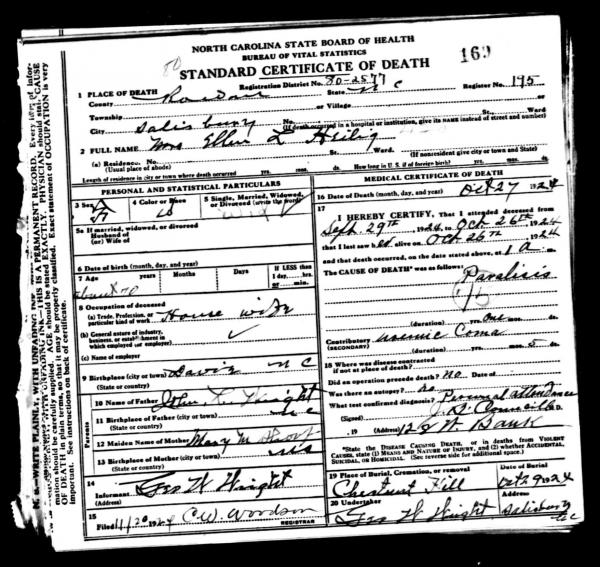 NORTH CAROLINA STATE BOARD OF HEALTH
BUREAU OF VITAL STATISTICS
STANDARD CERTIFICATE OF DEATH
169
80
1 PLACE OF DEATH
Registration District No. 80-2577
Register No. 195
County Rowan State N C
Township or Village
City Salisbury No. St., Ward
(If death occurred in a hospital or institution, give its NAME instead of street and number)
2 FULL NAME Mrs Ellen L Heilig
(a) Residence. No. St., Ward
(Usual place of abode) (If nonresident give city or town and State)
Length of residence in city or town where death occurred yrs. mos. ds. How long in U. S. if of foreign birth? yrs. mos. ds.
PERSONAL AND STATISTICAL PARTICULARS
3 Sex F
4 Color or Race W
5 Single, Married, Widowed, or Divorced (write the word)
5a If married, widowed, or divorced
Husband of
(or) Wife of
6 Date of birth (month, day, and year)
7 Age Years Months Days If LESS than 1 day, hrs. or min.
about 70
8 Occupation of deceased
(a) Trade, Profession, or particular kind of work House wife
(b) General nature of industry, business, or establishment in which employed (or employer)
(c) Name of employer
9 Birthplace (city or town) Davie N C
(State or country)
Parents
10 Name of Father John L. Wright
11 Birthplace of Father (city or town) N C
(State or country)
12 Maiden Name of Mother Mary M
13 Birthplace of Mother (city or town)
(State or country)
14 Informant Geo W Wright
15 Filed 11/20 1924 C. W. Woodson REGISTRAR
MEDICAL CERTIFICATE OF DEATH
16 Date of Death (month, day, and year) Oct 27 1924
17 I HEREBY CERTIFY, That I attended deceased from
Sept. 29th, 1924, to Oct. 26th, 1924
that I last saw her alive on Oct 26th, 1924
and that death occurred, on the date stated above, at 1 a.
The CAUSE OF DEATH* was as follows:
Paralisis
(duration) yrs. One mos. ds.
Contributory (SECONDARY) uremic Coma
(duration) yrs. mos. 5 ds.
18 Where was disease contracted if not at place of death?
Did an operation precede death? no Date of
Was there an autopsy? no
What test confirmed diagnosis? Personal attendance
(Signed) M. D.
, 19 (Address) 128 W Bank
*State the DISEASE CAUSING DEATH, or in deaths from VIOLENT CAUSES, state (1) MEANS AND NATURE OF INJURY, and (2) whether ACCIDENTAL, SUICIDAL, or HOMICIDAL. (See reverse side for additional space.)
19 Place of Burial, Cremation, or removal Date of Burial
Chestnut Hill Oct 29 1924
20 Undertaker Address
Geo W Wright Salisbury N C